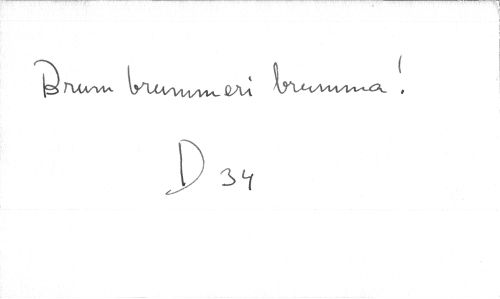 Brum brummeri brumma!
D 34